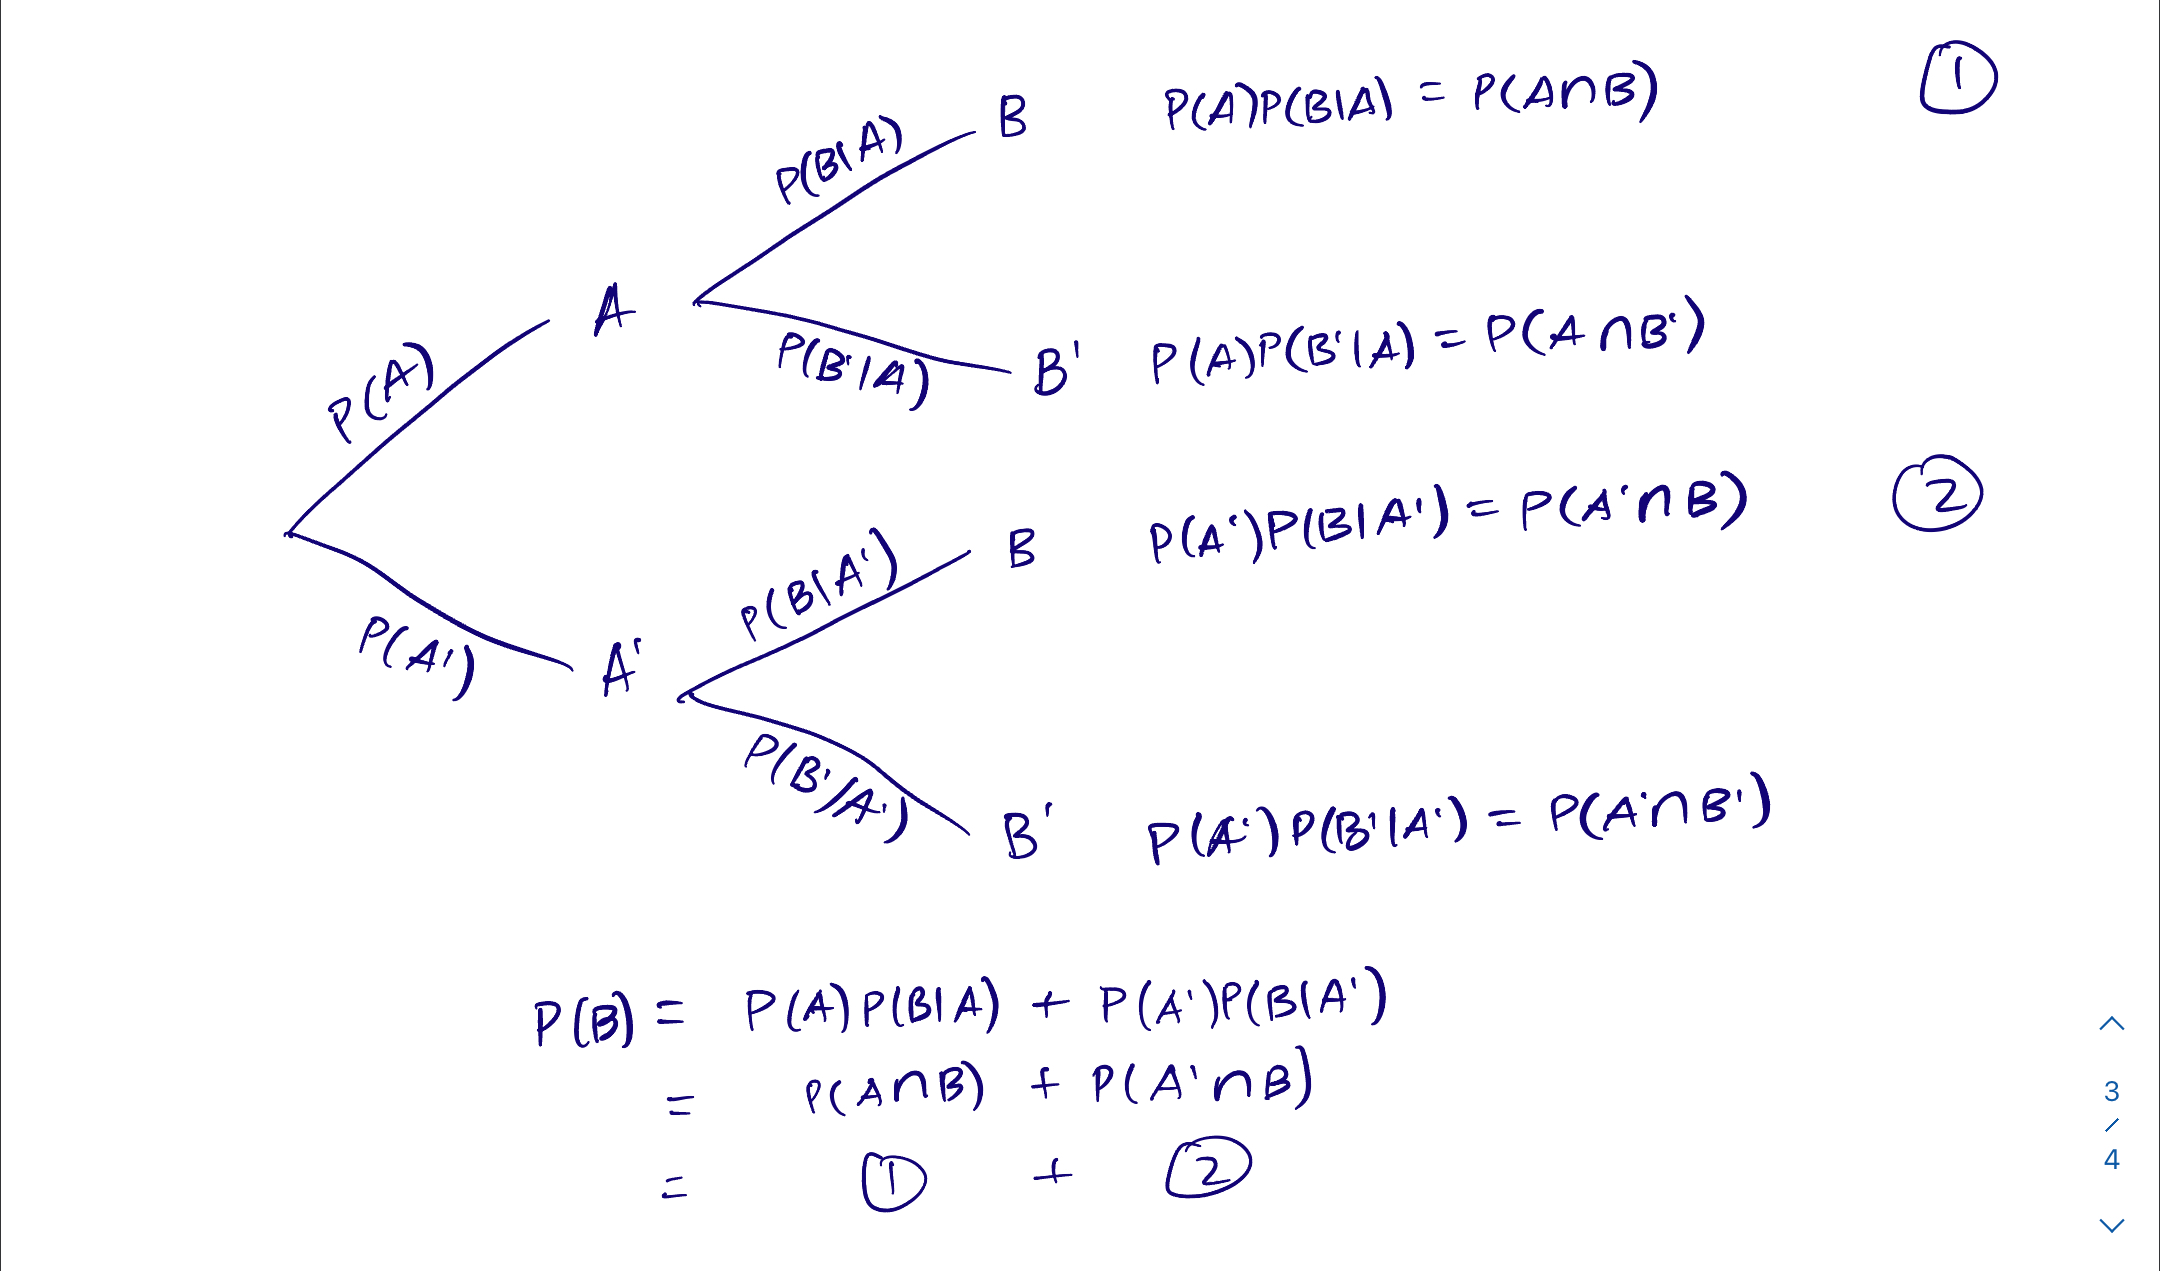 P(B|A) B P(A)P(B|A) = P(A∩B) ①
P(A) A
P(B'|A) B' P(A)P(B'|A) = P(A∩B')
P(B|A') B P(A')P(B|A') = P(A'∩B) ②
P(A') A'
P(B'|A') B' P(A')P(B'|A') = P(A'∩B')
P(B) = P(A)P(B|A) + P(A')P(B|A')
= P(A∩B) + P(A'∩B)
= ① + ②
3
/
4